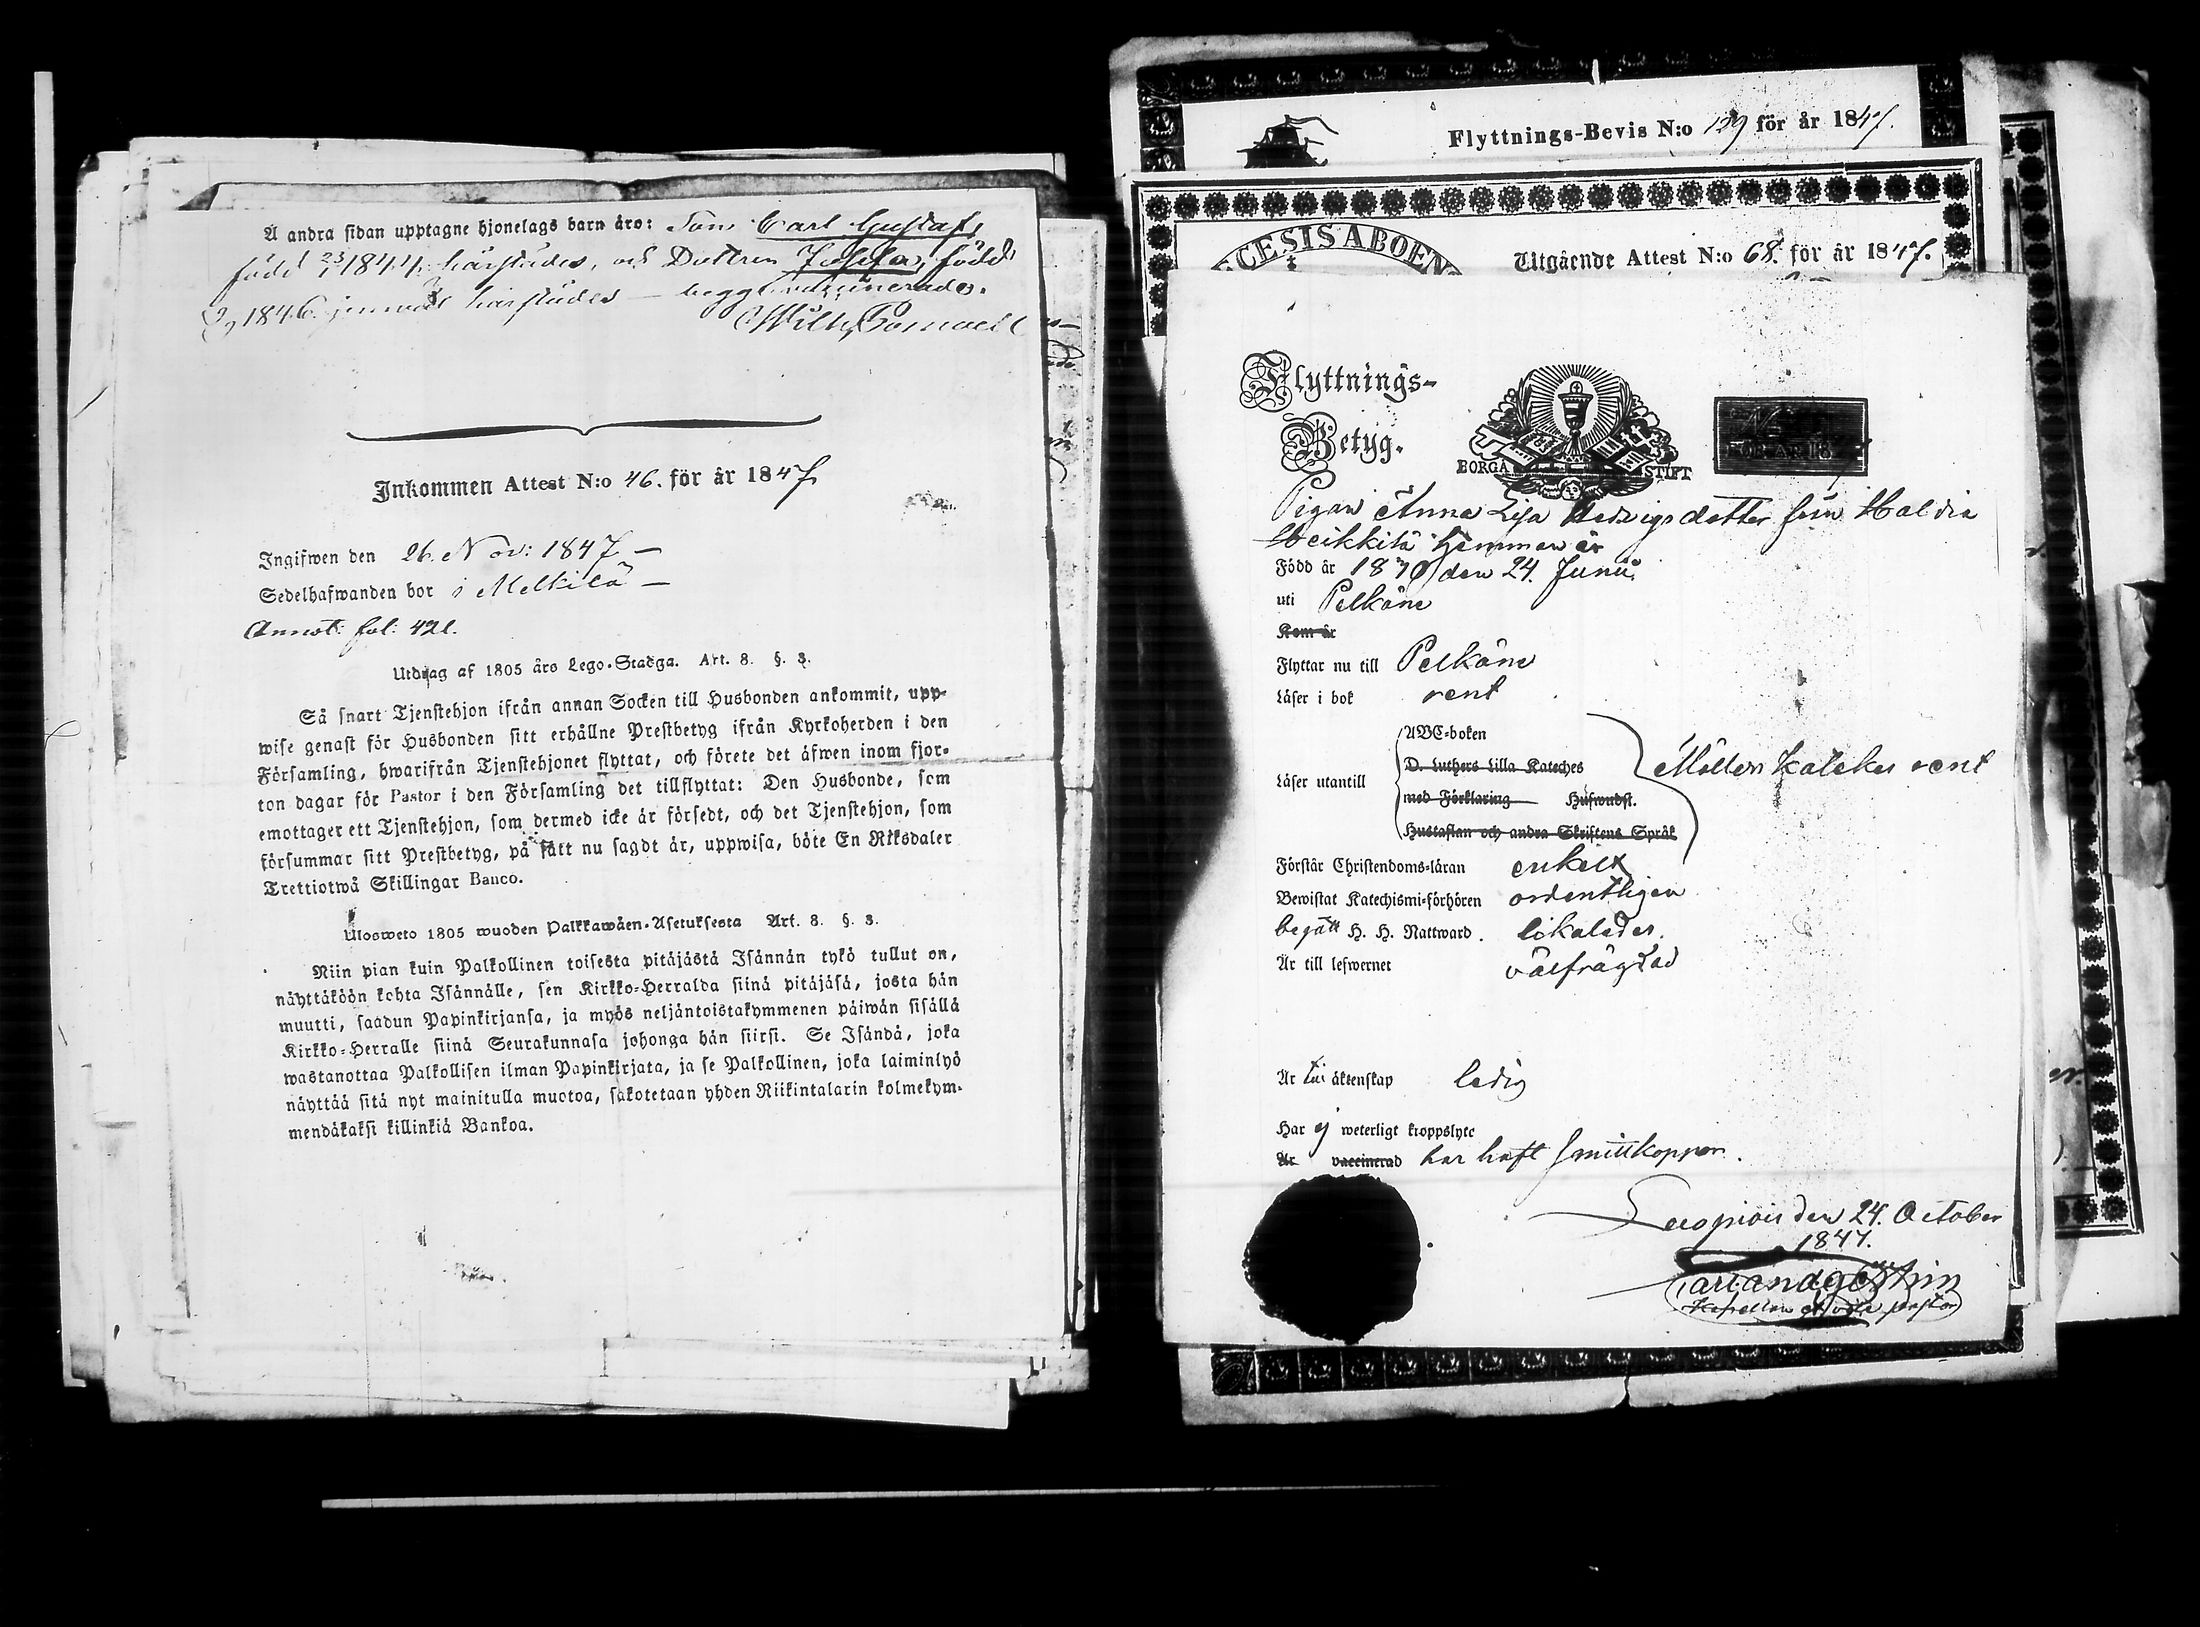 Å andra sidan upptagne hjonelags barn äro: Son Carl Gustaf,
född 23/1 1844 härstädes, och Dottren Josefa, född
1846 jemväl härstädes — begge vaccinerade.
Inkommen Attest N:o 46. för år 1847
Ingifwen den 26. Nov: 1847 —
Sedelhafwanden bor i Melkilä —
Annot: fol: 421.
Utdrag af 1805 års Lego-Stadga. Art. 8. §. 3.
Så snart Tjenstehjon ifrån annan Socken till Husbonden ankommit, upp-
wise genast för Husbonden sitt erhållne Prestbetyg ifrån Kyrkoherden i den
Församling, hwarifrån Tjenstehjonet flyttat, och förete det äfwen inom fjor-
ton dagar för Pastor i den Församling det tillflyttat: Den Husbonde, som
emottager ett Tjenstehjon, som dermed icke är försedt, och det Tjenstehjon, som
försummar sitt Prestbetyg, på sätt nu sagdt är, uppwisa, böte En Riksdaler
Trettiotwå Skillingar Banco.
Ulosweto 1805 wuoden Palkkawäen-Asetuksesta Art. 8. §. 3.
Niin pian kuin Palkollinen toisesta pitäjästä Isännän tykö tullut on,
näyttäköön kohta Isännälle, sen Kirkko-Herralda siinä pitäjäsä, josta hän
muutti, saadun Papinkirjansa, ja myös neljäntoistakymmenen päiwän sisällä
Kirkko-Herralle siinä Seurakunnasa johonga hän siirsi. Se Isändä, joka
wastanottaa Palkollisen ilman Papinkirjata, ja se Palkollinen, joka laiminlyö
näyttää sitä nyt mainitulla muotoa, sakotetaan yhden Riikintalarin kolmekym-
mendäkaksi killinkiä Bankoa.
Flyttnings-Bevis N:o 129 för år 1847.
CESIS ABOEN
Utgående Attest N:o 68. för år 1847.
Flyttnings-
Betyg.
BORGÅ STIFT
FÖR ÅR 18
Pigan Anna Lisa Hedvigsdotter från Haldia
Heikkilä hemman är
Född år 1830 den 24. Junii
uti Pelkäne
Kom år
Flyttar nu till Pelkäne
Läser i bok rent
ABC-boken
D. Luthers Lilla Kateches
Läser utantill Möllers Kateches rent
med Förklaring Hufwudst.
Hustaflan och andra Skriftens Språk
Förstår Christendoms-läran enkelt
Bewistat Katechismi-förhören ordentligen
begått H. H. Nattward. likaledes.
Är till lefwernet välfrägdad
Är till äktenskap ledig
Har ej weterligt kroppslyte
Är vaccinerad har haft smittkoppor.
Luopiois den 24. October
1847.